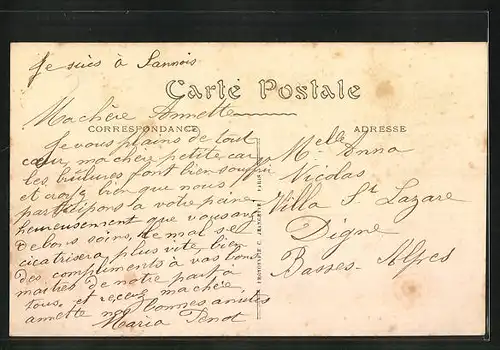 Je suis à Sannois
Carte Postale
Ma chère Annette
CORRESPONDANCE
ADRESSE
Je vous plains de tout
cœur, ma chère petite car
les brûlures font bien souffrir
et croyez bien que nous
participons à votre peine
heureusement que vous avez
de bons soins, le mal se
cicatrisera plus vite bien
des compliments à vos bons
maîtres de notre part à
tous, et recevez ma chère,
annette nos bonnes amitiés
Maria Penot
Melle Anna
Nicolas
Villa St Lazare
Digne
Basses-Alpes